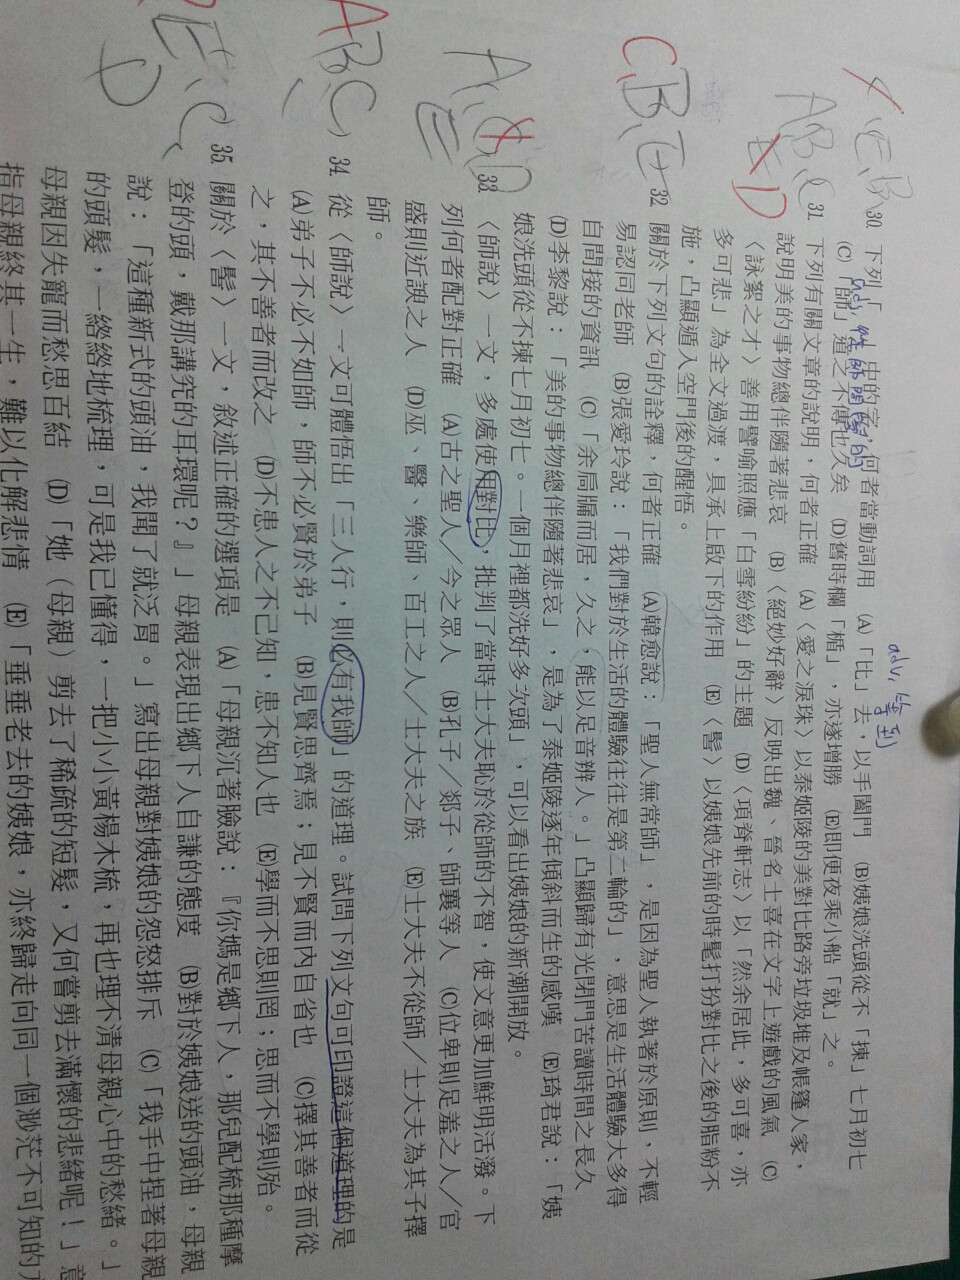 30. 下列「 」中的字，何者當動詞用 (A)「比」去，以手闔門 (B)姨娘洗頭從不「揀」七月初七
(C)「師」道之不傳也久矣 (D)舊時欄「楯」，亦遂增勝 (E)即便夜乘小船「就」之。
31. 下列有關文章的說明，何者正確 (A)〈愛之淚珠〉以泰姬陵的美對比路旁垃圾堆及帳篷人家，
說明美的事物總伴隨著悲哀 (B)〈絕妙好辭〉反映出魏、晉名士喜在文字上遊戲的風氣 (C)
〈詠絮之才〉善用譬喻照應「白雪紛紛」的主題 (D)〈項脊軒志〉以「然余居此，多可喜，亦
多可悲」為全文過渡，具承上啟下的作用 (E)〈髻〉以姨娘先前的時髦打扮對比之後的脂粉不
施，凸顯遁入空門後的醒悟。
32 關於下列文句的詮釋，何者正確 (A)韓愈說：「聖人無常師」，是因為聖人執著於原則，不輕
易認同老師 (B)張愛玲說：「我們對於生活的體驗往往是第二輪的」，意思是生活體驗大多得
自間接的資訊 (C)「余扃牖而居，久之，能以足音辨人。」凸顯歸有光閉門苦讀時間之長久
(D)李黎說：「美的事物總伴隨著悲哀」，是為了泰姬陵逐年傾斜而生的感嘆 (E)琦君說：「姨
娘洗頭從不揀七月初七。一個月裡都洗好多次頭」，可以看出姨娘的新潮開放。
33. 〈師說〉一文，多處使用對比，批判了當時士大夫恥於從師的不智，使文意更加鮮明活潑。下
列何者配對正確 (A)古之聖人／今之眾人 (B)孔子／郯子、師襄等人 (C)位卑則足羞之人／官
盛則近諛之人 (D)巫、醫、樂師、百工之人／士大夫之族 (E)士大夫不從師／士大夫為其子擇
師。
34. 從〈師說〉一文可體悟出「三人行，則必有我師」的道理。試問下列文句可印證這個道理的是
(A)弟子不必不如師，師不必賢於弟子 (B)見賢思齊焉；見不賢而內自省也 (C)擇其善者而從
之，其不善者而改之 (D)不患人之不己知，患不知人也 (E)學而不思則罔；思而不學則殆。
35. 關於〈髻〉一文，敘述正確的選項是 (A)「母親沉著臉說：『你媽是鄉下人，那兒配梳那種摩
登的頭，戴那講究的耳環呢？』」母親表現出鄉下人自謙的態度 (B)對於姨娘送的頭油，母親
說：「這種新式的頭油，我聞了就泛胃。」寫出母親對姨娘的怨怒排斥 (C)「我手中捏著母親
的頭髮，一綹綹地梳理，可是我已懂得，一把小小黃楊木梳，再也理不清母親心中的愁緒。」
母親因失寵而愁思百結 (D)「她（母親）剪去了稀疏的短髮，又何嘗剪去滿懷的悲緒呢！」意
指母親終其一生，難以化解悲情 (E)「垂垂老去的姨娘，亦終歸走向同一個渺茫不可知的
adv. 等到
A,B,C
D
C,B,E
A,D
E
A,B,C,
E,C,
D